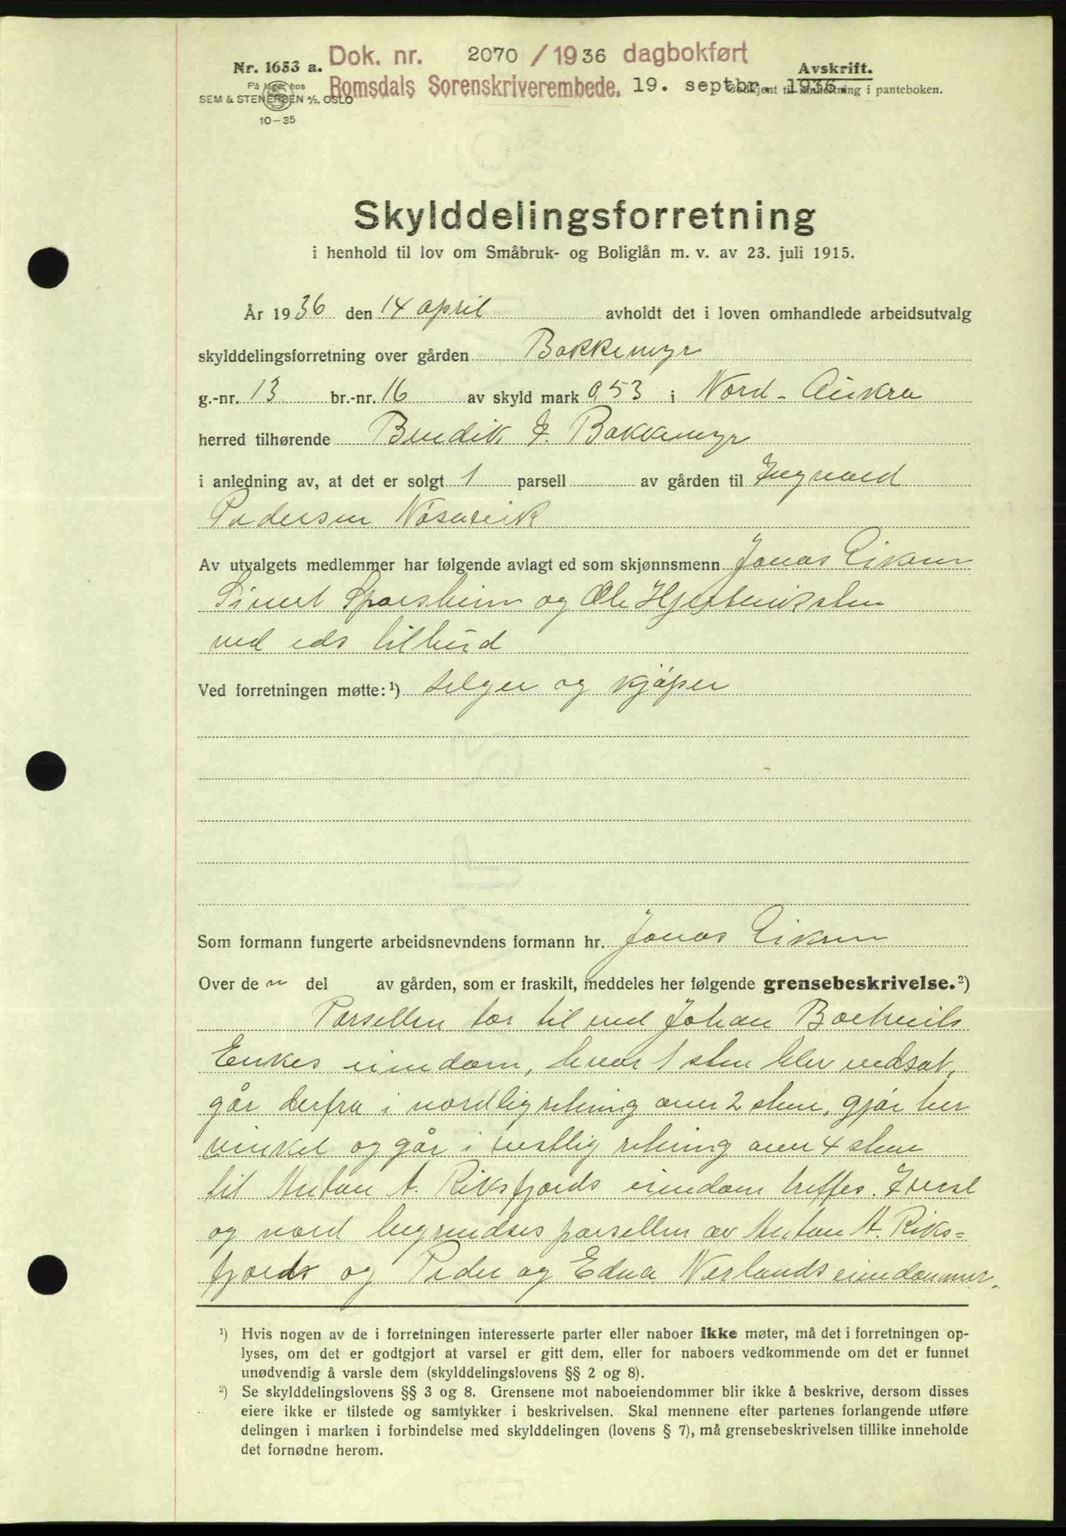 Nr. 1653 a.
På lager hos
SEM & STENERSEN A/S, OSLO
10-35
Dok. nr. 2070 / 1936 dagbokført
Romsdals Sorenskriverembede. 19. septbr. 1936.
Avskrift.
Godkjent til innheftning i panteboken.
Skylddelingsforretning
i henhold til lov om Småbruk- og Boliglån m. v. av 23. juli 1915.
År 1936 den 14 april avholdt det i loven omhandlede arbeidsutvalg
skylddelingsforretning over gården Bakkemyr
g.-nr. 13 br.-nr. 16 av skyld mark 0,53 i Nord-Aukra
herred tilhørende Bendik J. Bakkemyr
i anledning av, at det er solgt 1 parsell av gården til Ingvald
Pedersen Nøsavik
Av utvalgets medlemmer har følgende avlagt ed som skjønnsmenn Jonas Eikrem
Sivert Sporsheim og Ole
ved eds tilbud
Ved forretningen møtte: ¹) selger og kjøper
Som formann fungerte arbeidsnevndens formann hr. Jonas Eikrem
Over de n del av gården, som er fraskilt, meddeles her følgende grensebeskrivelse.²)
Parsellen tar til ved Johan
Enkes eiendom, hvor 1 sten blev nedsat,
går derfra i nordlig retning over 2 stene, gjør her
vinkel og går i vestlig retning over 4 stene
til Anton A. Riksfjords eiendom treffes. I vest
og nord begrendses parsellen av Anton A. Riks=
fjords og Peder og Edna Nerlands eiendommer.
¹) Hvis nogen av de i forretningen interesserte parter eller naboer ikke møter, må det i forretningen op-
lyses, om det er godtgjort at varsel er gitt dem, eller for naboers vedkommende om det er funnet
unødvendig å varsle dem (skylddelingslovens §§ 2 og 8).
²) Se skylddelingslovens §§ 3 og 8. Grensene mot naboeiendommer blir ikke å beskrive, dersom disses
eiere ikke er tilstede og samtykker i beskrivelsen. Skal mennene efter partenes forlangende utføre
delingen i marken i forbindelse med skylddelingen (lovens § 7), må grensebeskrivelsen tillike inneholde
det fornødne herom.